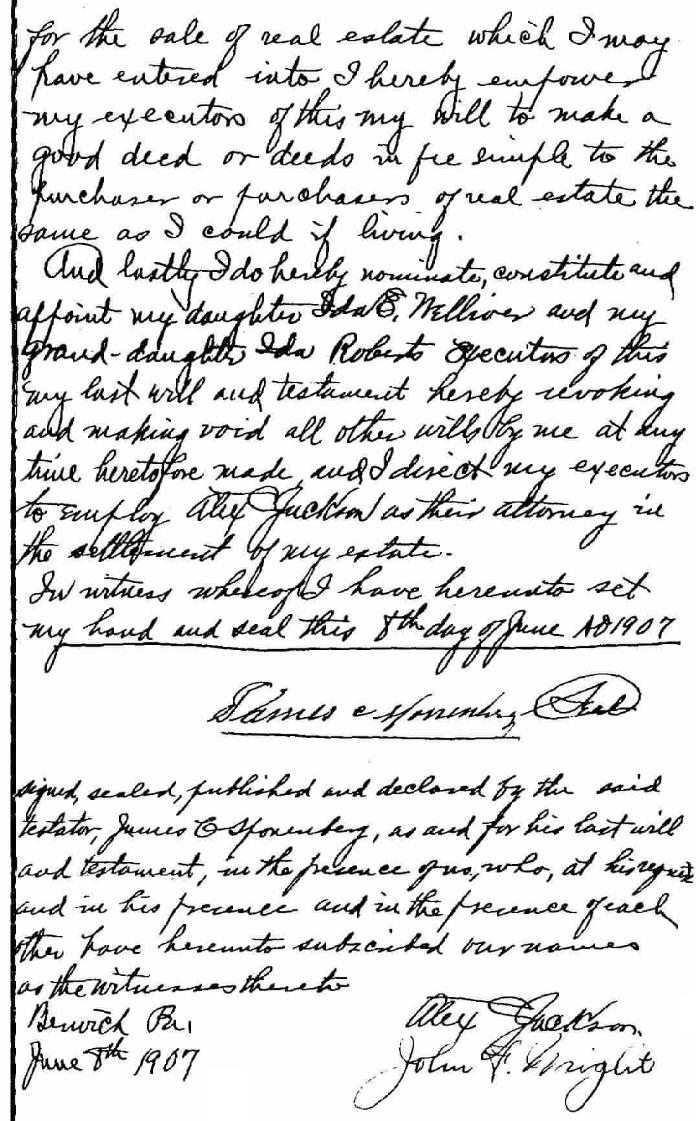 for the sale of real estate which I may
have entered into I hereby empower
my executors of this my will to make a
good deed or deeds in fee simple to the
purchaser or purchasers of real estate the
same as I could if living.
And lastly I do hereby nominate, constitute and
appoint my daughter Ida E. Welliver and my
grand-daughter Ida Roberts Executors of this
my last will and testament hereby revoking
and making void all other wills by me at any
time heretofore made, and I direct my executors
to employ Alex Jackson as their attorney in
the settlement of my estate.
In witness whereof I have hereunto set
my hand and seal this 8th day of June AD 1907
James C Sponenberg Seal
signed, sealed, published and declared by the said
testator, James C Sponenberg, as and for his last will
and testament, in the presence of us, who, at his request
and in his presence and in the presence of each
other have hereunto subscribed our names
as the witnesses thereto
Berwick Pa.,
June 8th 1907
Alex Jackson
John F. Wright